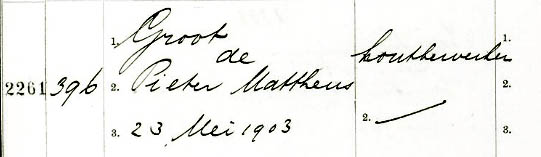 1. Groot 1.
de houtbewerker
2261 396 2. Pieter Mattheus 2.
3. 23 Mei 1903 2. 3.